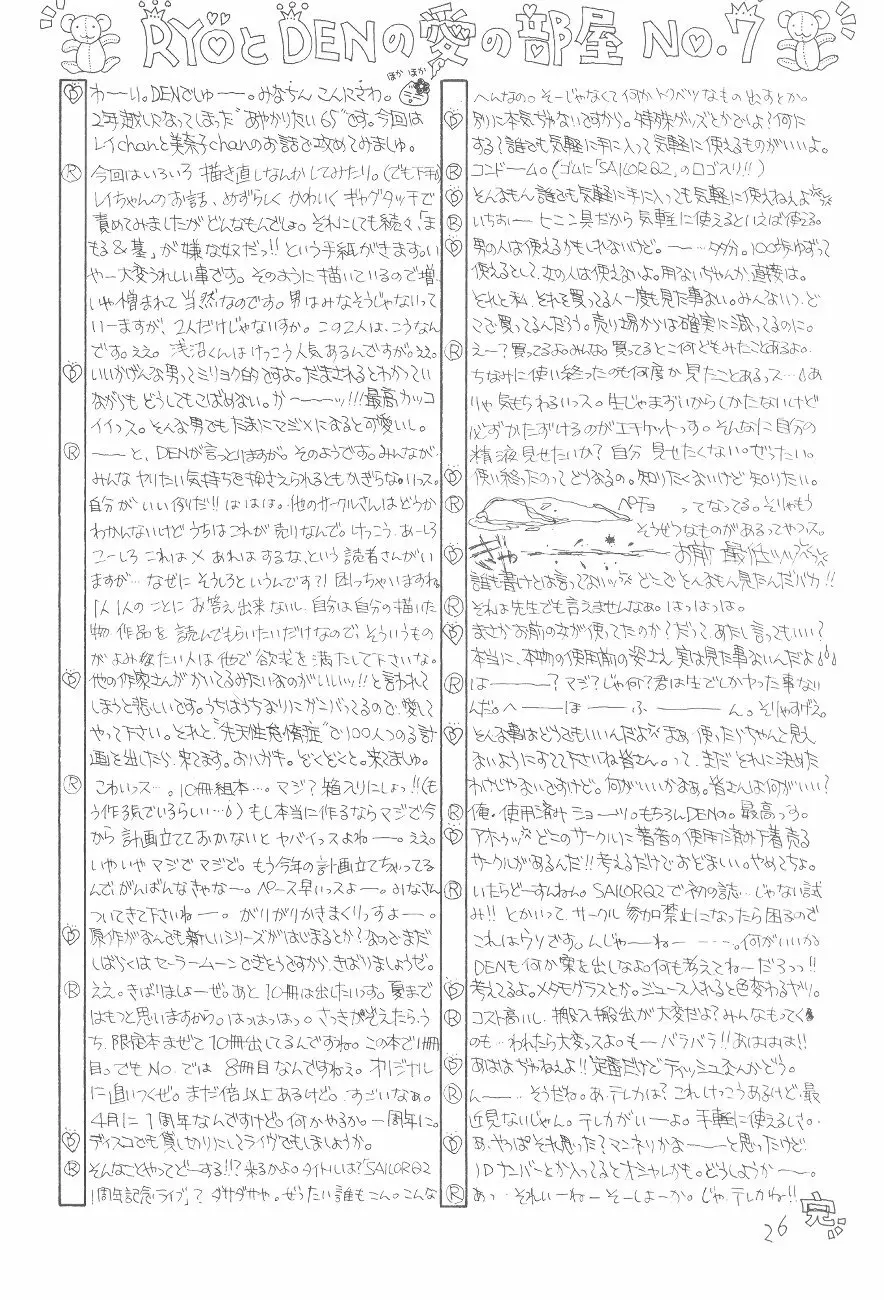 RYOとDENの愛の部屋 No.7
ほか ほか
D わーい。DENでしゅー。みなちん こんにさわ。
2年越しになってしまった"あやかりたい65"です。今回は
レイchanと美奈子chanのお話で攻めてみましゅ。
R 今回はいろいろ 描き直しなんかしてみたり。(でも下手)
レイちゃんのお話、めずらしく かわいく ギャグタッチで
責めてみましたがどんなもんでしょ。それにしても続々、「ま
もる&墓」が嫌な奴だっ!! という手紙がきます。い
やー大変うれしい事です。そのように描いているので増、
いや憎まれて 当然なのです。男はみなそうじゃないって
いーますが、2人だけじゃないすか。この2人は、こうなん
です。ええ。浅沼くんはけっこう人気あるんですが。ええ。
D いいかげんな男ってミリョク的ですよ。だまされるとわかってい
ながらも どうしてもこばめない。か〜〜ッ!!!最高カッコ
イイっス。そんな男でもたまにマジメになると可愛いし。
R 〜と、DENが言っとりますが。そのようです。みんなが、
みんな ヤリたい気持ちを押さえられるともかぎらな。いっス。
自分がいい例りだ!! ははは。他のサークルさんはどうか
わかんないけど うちはこれが 売りなんで。けっこう、あーしろ
こーしろ これは× あれは するな、という 読者さんがい
ますが… なぜに そうしろというんです?! 困っちゃいますね。
1人1人のことに お答え出来ないし、自分は自分の描いた
物 作品を 読んでもらいたいだけなので、そういうもの
がよみたい人は他で欲求を満たして下さいな。
D 他の作家さんがかいてるみたいなのがいいッ!!と言われて
しまうと悲しいです。うちはうちなりにガンバってるので、愛して
やって下さい。それと"先天性怠惰症"で100人つのる計
画を出したら、来てます。おハガキ。どくどくと。来てましゅ。
R こわいっス…。10冊組本…。マジ?箱入りにしょっ!!(も
う作る気でいるらしい…) もし本当に作るならマジで今
から 計画立てておかないと ヤバイっスよねー。ええ。
いやいや マジで マジで。もう今年の計画立てちゃってる
んで、がんばんなきゃなー。ペース早いっスよー。みなさん
ついてきて下さいねー。がりがりかきまくりっすよー。
D 原作がなんでも新しいシリーズがはじまるとか?なのでまだ
しばらくはセーラームーンできそうですから、きばりましょうぜ。
R ええ。きばりましょーぜ。あと 10冊は出したいっす。夏まで
はもつと思いますから。はっはっはっ。さっきかぞえたら、う
ち、限定本まぜて10冊出してるんですね。この本で11冊
目。でもNo.では 8冊目なんですねえ。オリジナル
に追いつくぜ。まだ倍以上あるけど。すごいなぁ。
4月に1周年なんですけど。何かやるか。一周年に。
D ディスコでも貸しきりにしてライヴでもしましょうか。
R そんなことやってどーする!!?来るかよ。タイトルは?「SAILORQ2
1周年記念ライブ」? ダサダサや。ぜったい誰もこん。こんな
へんなの。そーじゃなくて何かトクベツなもの出すとか。
D 別に本気ぢゃないですから。特殊グッズとかでしょ?何に
する?誰でも気軽に手に入って気軽に使えるものがいいよ。
R コンドーム。(ゴムに「SAILORQ2」のロゴ入り!!)
D そんなもん 誰でも気軽に手に入っても気軽に使えねえよ
R いちおー ヒニン具だから気軽に使えるといえば使える。
D 男の人は使えるかもしれないけど。〜…多分。100歩ゆずって
使えるとして、女の人は使えないよ。用ないぢゃんか、直接は。
それと私、それを買ってる人一度も見た事ない。みんないつ、ど
こで買ってるんだろう。売り場からは確実に減ってるのに。
R えー?買ってるよ。みんな。買ってるとこ何どもみたことあるよ。
ちなみに使い終ったのも何度か見たことあるっス…あ
りゃ気もちわるいっス。生じゃまずいからしかたないけど
必ずかたずけるのがエチケットっす。そんなに自分の
精液見せたいか? 自分見せたくない。ぜったい。
D 使い終ったのってどうなるの。知りたくないけど知りたい。
R ペチョ ってなってる。そりゃもう
そうぜつなものがあるってやつっス。
D ぎゃ お前 最低ッッ
誰も書けとは言ってないッ どこで そんなもん見たんだバカ!!
R それは先生でも言えませんなぁ。はっはっは。
D まさかお前の女が使ってたのか?だって、あたし言ってもいい?
本当に、本物の使用前の姿さえ 実は見た事ないんだよ
R は〜〜? マジ?じゃ何?君は生でしかヤった事ない
んだ。へ〜〜ほ〜〜ふ〜〜ん。そりゃすげえ。
D そんな事はどうでもいいんだよ まぁ・使ったらちゃんと見え
ないようにすてて下さいね皆さん。って、まだ それに決めた
わけじゃないですけど。何がいいかなぁ。皆さんは何がいい?
R 俺・使用済み ショーツ。もちろんDENの。最高っす。
D アホゥッ どこのサークルに著者の使用済み下着売る
サークルがあるんだ!!考えるだけでおどましい。やめてちょ。
R いたらどーすんねん。SAILORQ2で初の試…じゃない試
み!! とかいって サークル 参加禁止になったら困るので
これはウソです。んじゃ〜ねー ……。何がいいか
DENも何か案を出しなよ。何も考えてねーだろっ!!
D 考えてるよ。メタモグラスとか。ジュース入れると色変わるヤツ。
R コスト高いし、搬入搬出が大変だよ?みんなもってく
のも…われたら大変っスよ。もーバラバラ!!おははは!!
D あははぢゃねえよ!!定番だけどティッシュなんかどう。
R ん〜… そうだね。あ、テレカは?これけっこうあるけど・最
近見ないじゃん。テレカがいーよ。手軽に使えるしさ。
D あ、やっぱそれ思った?マンネリかなー〜と思ったけど
IDナンバーとか入ってるとオシャレかも。どうしようか〜。
R あっ…それいーねーそーしよーか。じゃ、テレカね!!
完
26